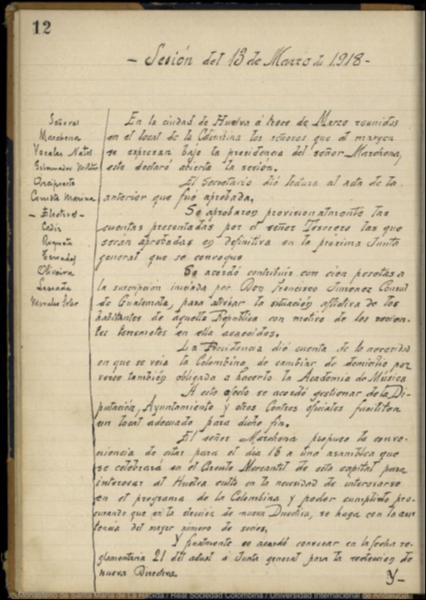 12
- Sesión del 13 de Marzo de 1918 -
Señores
Marchena
Vocales Natos
Gobernador Militar
Arcipreste
Comdte Marina
- Electivos -
Cádiz
Terrades
Oliveira
En la ciudad de Huelva á trece de Marzo reunidos
en el local de la Colombina los señores que al margen
se expresan bajo la presidencia del señor Marchena,
este declaró abierta la sesión.
El Secretario dió lectura al acta de la
anterior que fué aprobada.
Se aprobaron provisionalmente las
cuentas presentadas por el señor Tesorero las que
serán aprobadas en definitiva en la próxima Junta
general que se convoque
Se acordó contribuir con cien pesetas a
la suscripción iniciada por Don Francisco Jimenez Consul
de Guatemala, para aliviar la situación aflictiva de los
habitantes de aquella República con motivo de los recien-
tes terremotos en ella acaecidos.
La Presidencia dió cuenta de la necesidad
en que se veía la Colombina de cambiar de domicilio por
verse también obligada a hacerlo la Academia de Música
A este efecto se acordó gestionar de la Di-
putación, Ayuntamiento y otros Centros oficiales faciliten
un local adecuado para dicho fin.
El señor Marchena propuso la conve-
niencia de citar para el día 16 a una asamblea que
se celebrará en el Circulo Mercantil de esta capital para
interesar al Huelva culto en la necesidad de interesarse
en el programa de la Colombina y poder cumplirlo pro-
curando que en la elección de nueva Directiva, se haga con la asis-
tencia del mayor número de socios.
Y finalmente se acordó convocar en la fecha re-
glamentaria 21 del actual á Junta general para la renovación de
nueva Directiva.
Y-